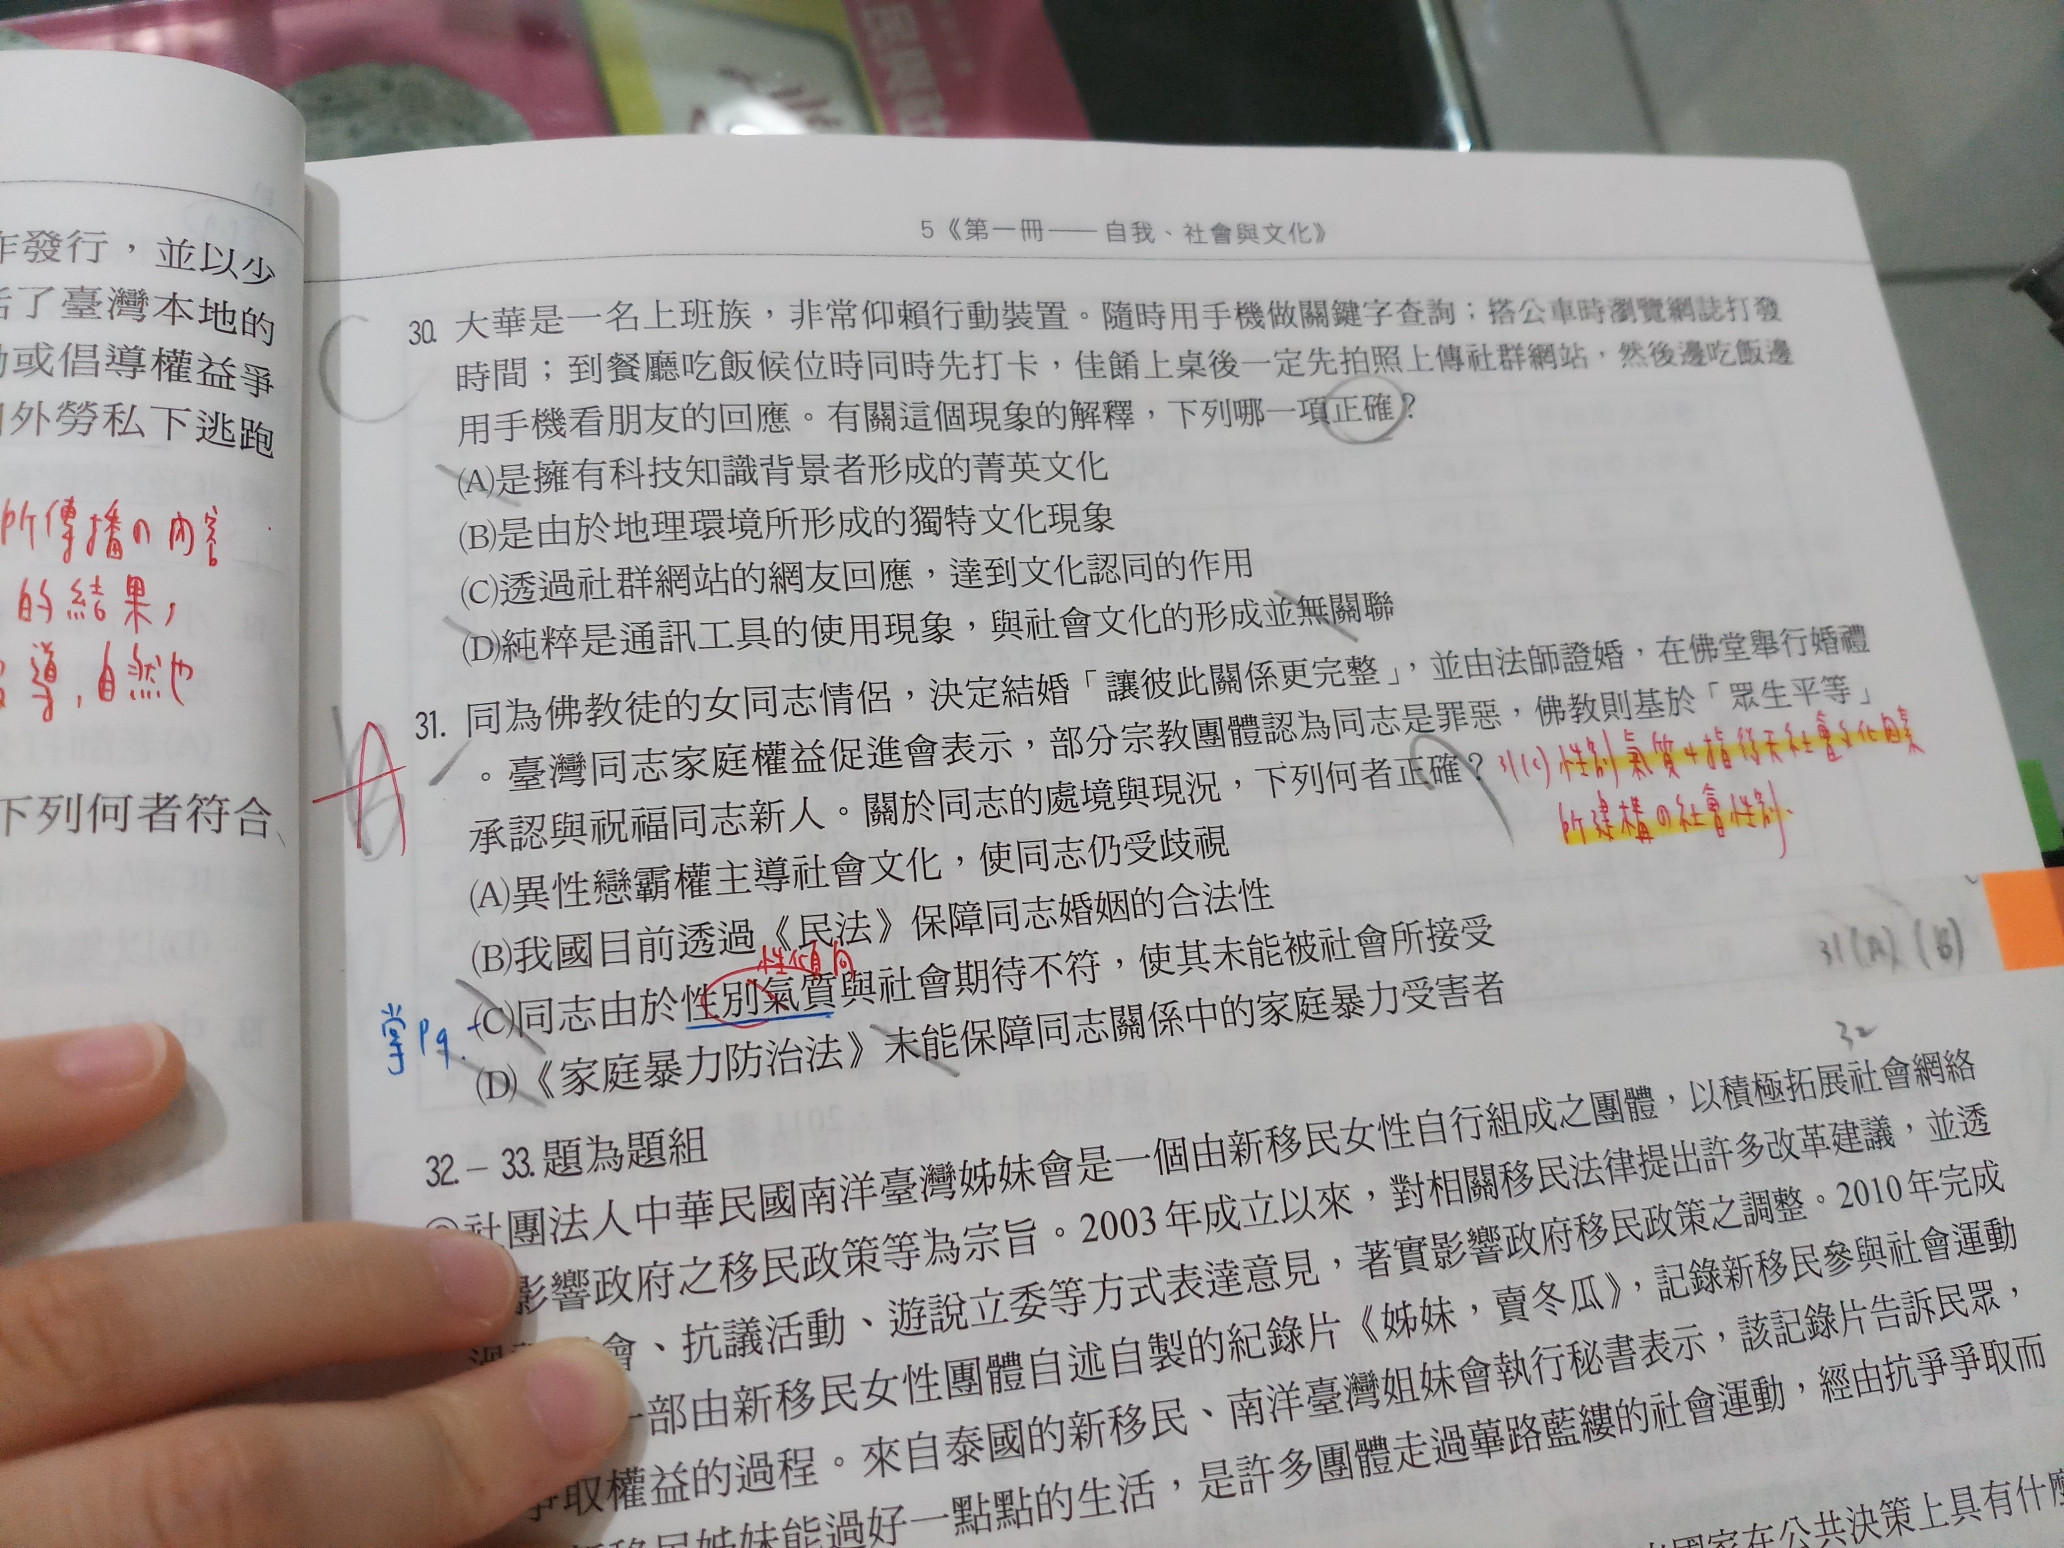 作發行，並以少
括了臺灣本地的
動或倡導權益爭
外勞私下逃跑
所傳播の內容
的結果，
導，自然也
下列何者符合
5《第一冊——自我、社會與文化》
C
30. 大華是一名上班族，非常仰賴行動裝置。隨時用手機做關鍵字查詢；搭公車時瀏覽網誌打發
時間；到餐廳吃飯候位時同時先打卡，佳餚上桌後一定先拍照上傳社群網站，然後邊吃飯邊
用手機看朋友的回應。有關這個現象的解釋，下列哪一項正確？
(A)是擁有科技知識背景者形成的菁英文化
(B)是由於地理環境所形成的獨特文化現象
(C)透過社群網站的網友回應，達到文化認同的作用
(D)純粹是通訊工具的使用現象，與社會文化的形成並無關聯
A
31. 同為佛教徒的女同志情侶，決定結婚「讓彼此關係更完整」，並由法師證婚，在佛堂舉行婚禮
。臺灣同志家庭權益促進會表示，部分宗教團體認為同志是罪惡，佛教則基於「眾生平等」
承認與祝福同志新人。關於同志的處境與現況，下列何者正確？
31(C) 性別氣質→指後天社會文化因素
所建構の社會性別.
(A)異性戀霸權主導社會文化，使同志仍受歧視
(B)我國目前透過《民法》保障同志婚姻的合法性
性傾向
(C)同志由於性別氣質與社會期待不符，使其未能被社會所接受
掌P9.
(D)《家庭暴力防治法》未能保障同志關係中的家庭暴力受害者
31(A) (B)
32
32.－33.題為題組
社團法人中華民國南洋臺灣姊妹會是一個由新移民女性自行組成之團體，以積極拓展社會網絡
影響政府之移民政策等為宗旨。2003年成立以來，對相關移民法律提出許多改革建議，並透
會、抗議活動、遊說立委等方式表達意見，著實影響政府移民政策之調整。2010年完成
一部由新移民女性團體自述自製的紀錄片《姊妹，賣冬瓜》，記錄新移民參與社會運動
爭取權益的過程。來自泰國的新移民、南洋臺灣姐妹會執行秘書表示，該記錄片告訴民眾，
新移民姊妹能過好一點點的生活，是許多團體走過蓽路藍縷的社會運動，經由抗爭爭取而
國家在公共決策上具有什麼